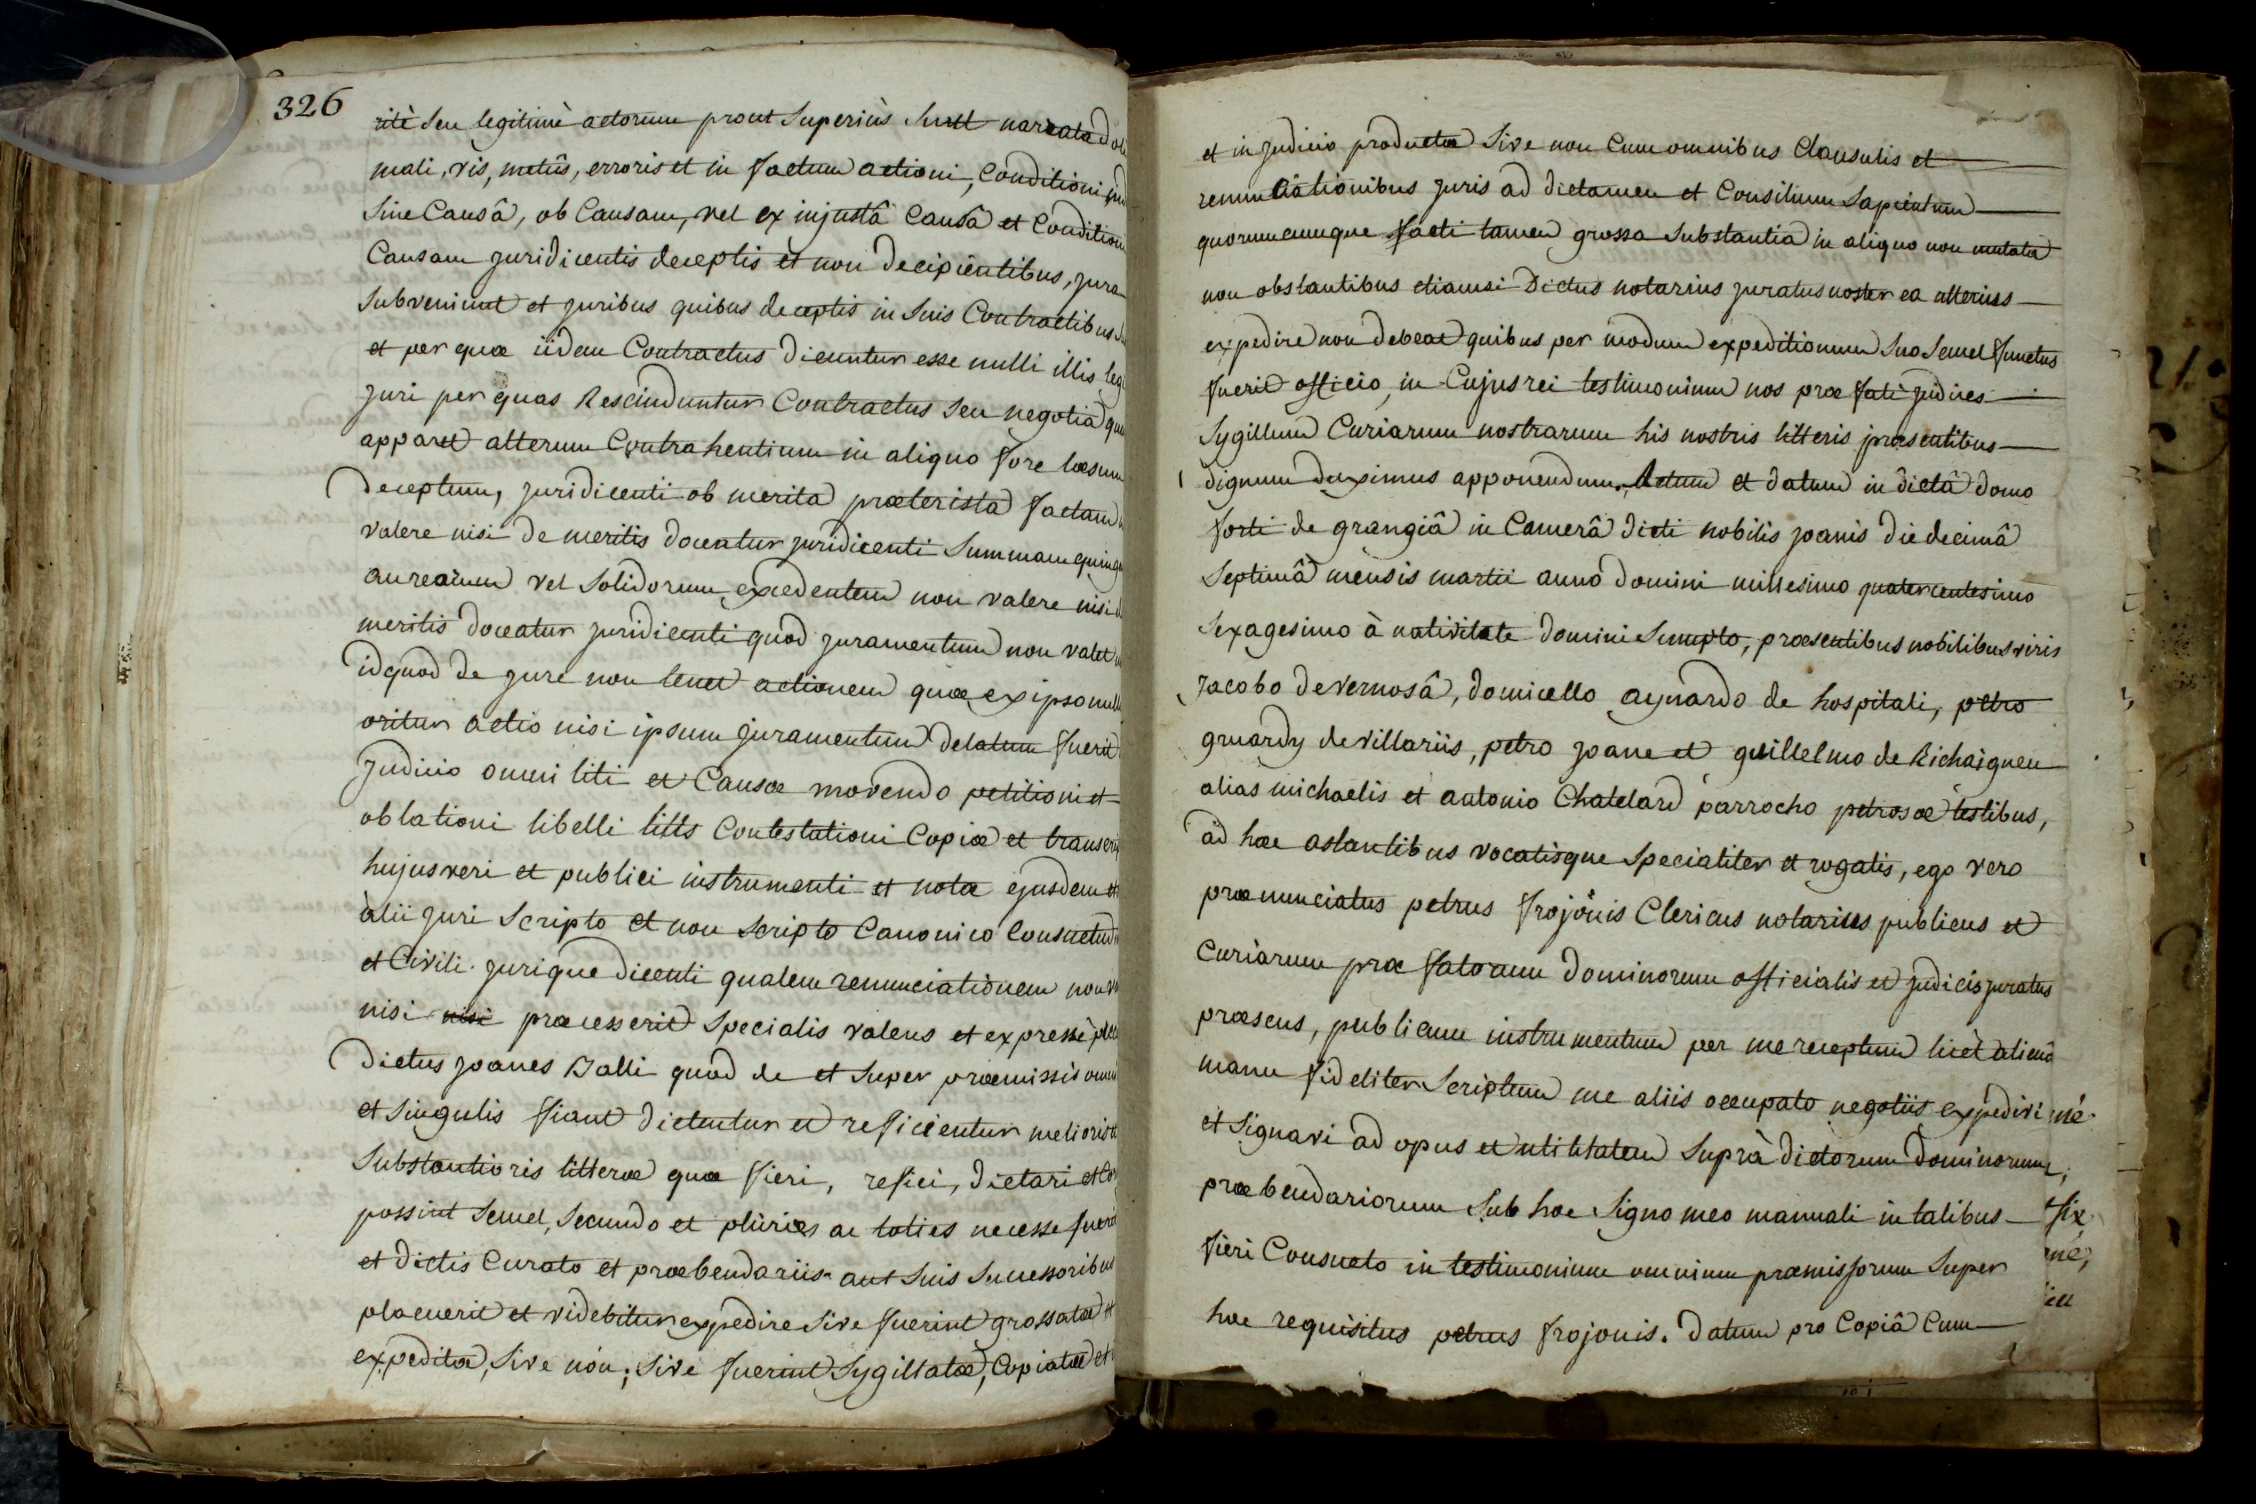 326
ritè seu legitimè actorum prout superiùs sunt narrata doli
mali, vis, metûs, erroris et in factum actioni, Conditioni ind
sine Causâ, ob Causam, vel ex injustâ Causâ et Condition
Causam juridicentis deceptis et non decipientibus, jura
subveniunt et juribus quibus deceptis in suis Contractibus
et per quæ iidem Contractus dicuntur esse nulli illis leg
juri per quas Rescinduntur Contractus seu negotia qu
apparet alterum Contrahentium in aliquo fore læsum
deceptum, juridicenti ob merita præterista factam
valere nisi de meritis doceatur juridicenti summam quing
aureorum vel solidorum excedentem non valere nisi d
meritis doceatur juridicenti quod juramentum non valet
id quod de jure non tenet actionem quæ ex ipso null
oritur actio nisi ipsum juramentum delatum fuerit
judicio omni liti et Causæ movendo petitioni et
oblationi libelli litis Contestationi Copiæ et transcri
hujus veri et publici instrumenti et notæ ejusdem et
alii juri scripto et non scripto Canonico Consuetudi
et Civili. jurique dicenti qualem renunciationem non v
nisi nisi præcesserit specialis valens et expressè
dictus joanes Balli quod de et super præmissis omni
et singulis fiant dictentur et reficientur melioris
substantioris litteræ quæ fieri, refici, dictari et Cor
possint semel, secundo et pluries ac toties necesse fueri
et dictis Curato et præbendariis aut suis successoribus
placuerit et videbitur expedire sive fuerint grossatæ et
expeditæ, sive non, sive fuerint sygillatæ, Copiatæ et
et in judicio productæ sive non cum omnibus Clausulis et
renunciationibus juris ad dictamen et Consilium sapientum
quorumcumque facti tamen grossa substantia in aliquo non mutata
non obstantibus etiamsi Dictus notarius juratus noster ea ulterius
expedire non debeat quibus per modum expeditionum suo semel functus
fuerit officio, in Cujus rei testimonium nos præfati judices
sygillum Curiarum nostrarum his nostris litteris præsentibus
dignum duximus apponendum. Actum et datum in dictâ domo
forti de grangiâ in Camerâ dicti nobilis joanis die decimâ
septimâ mensis martii anno domini millesimo quatercentesimo
sexagesimo à nativitate domini sumpto, præsentibus nobilibus viris
Jacobo de vernosâ, domicello aynardo de hospitali, petro
gruardy de villariis, petro joane et guillelmo de Richaigneu
alias michaelis et antonio Chatelard parrocho petrosæ testibus,
ad hæc astantibus vocatisque specialiter et rogatis, ego vero
prænunciatus petrus frojonis Clericus notarius publicus et
curiarum præfatorum dominorum officialis et judicis juratus
præsens, publicum instrumentum per me receptum licèt alienâ
manu fideliter scriptum me aliis occupato negotiis expedivi
et signavi ad opus et utilitatem suprà dictorum dominorum
præbendariorum sub hoc signo meo manuali in talibus
fieri Consueto in testimonium omnium præmissorum super
hoc requisitus petrus frojonis. datum pro Copiâ Cum